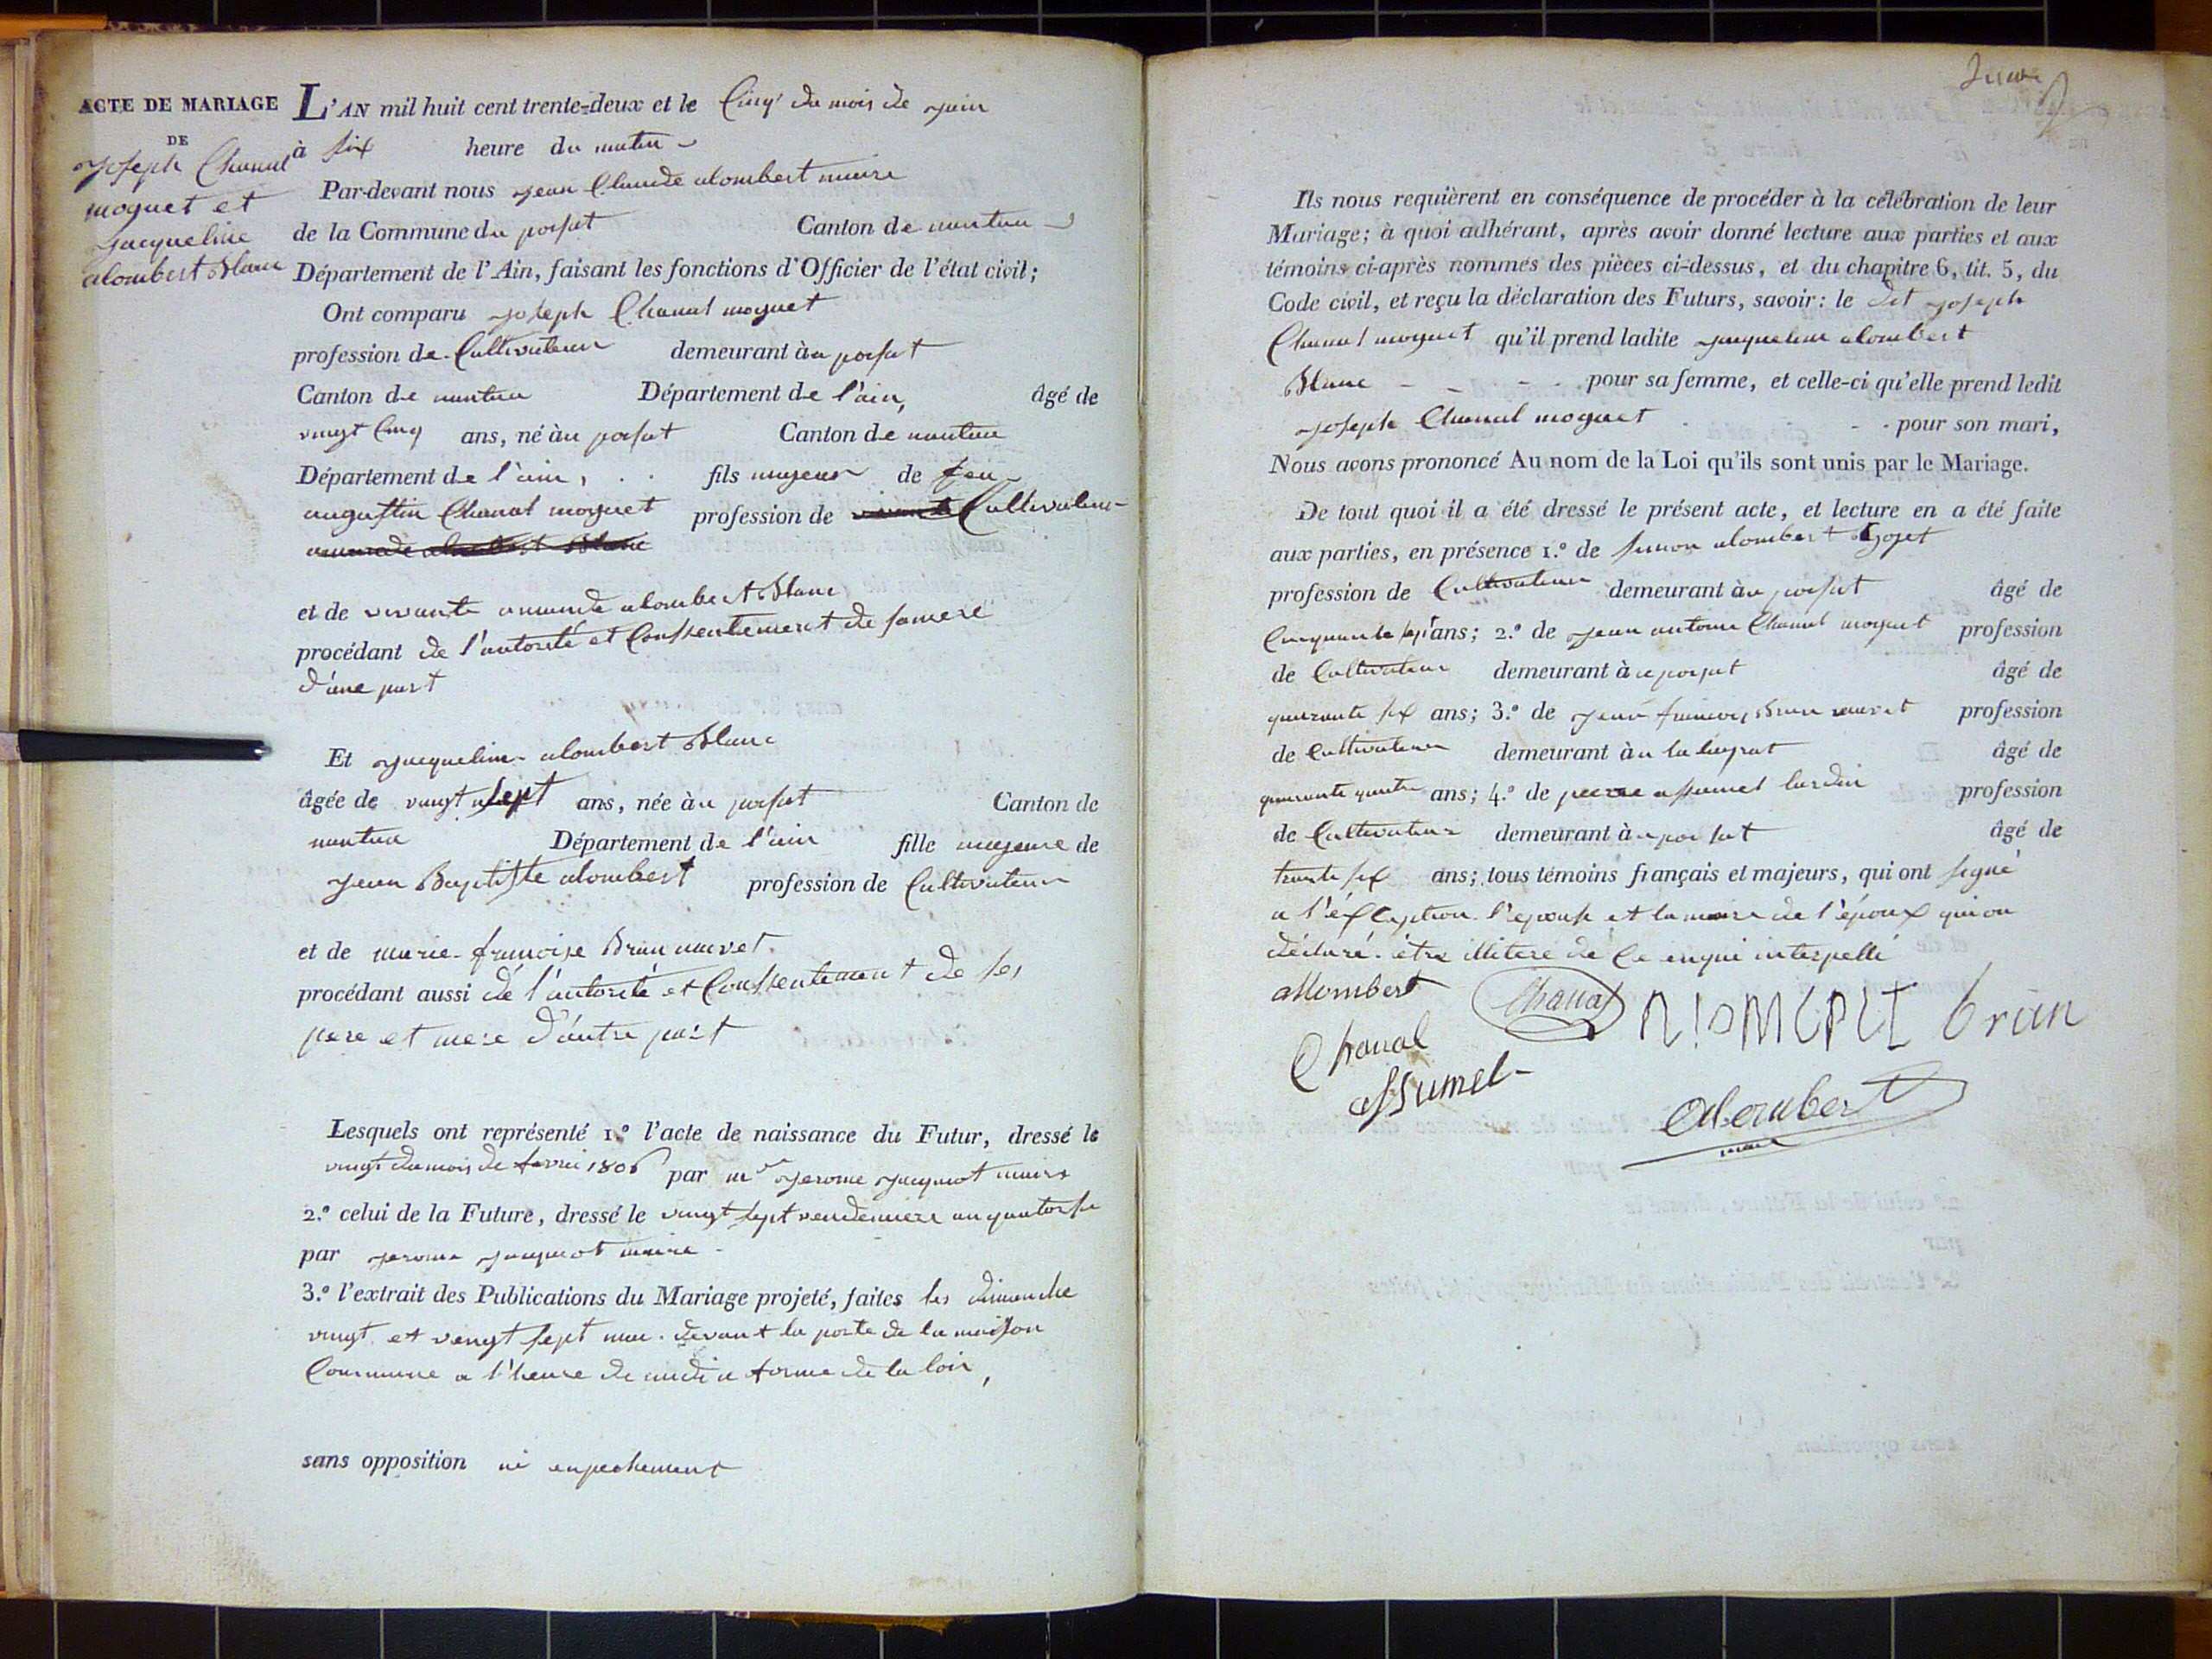 ACTE DE MARIAGE
DE
Joseph Chanal
moquet et
Jacqueline
alombert Blanc
L'AN mil huit cent trente-deux et le Cinq du mois de juin
à six heure du matin
Par-devant nous jean Claude alombert maire
de la Commune du poisat Canton de nantua
Département de l'Ain, faisant les fonctions d'Officier de l'état civil;
Ont comparu joseph Chanal moquet
profession de Cultivateur demeurant àu poisat
Canton de nantua Département de l'ain, âgé de
vingt Cinq ans, né àu poisat Canton de nantua
Département de l'ain, fils majeur de feu
augustin Chanal moquet profession de Cultivateur
et de vivante alombert Blanc
procédant de l'autorité et Conssentement de samere
d'une part
Et jacqueline alombert Blanc
âgée de vingt sept ans, née àu poisat Canton de
nantua Département de l'ain fille majeure de
jean Baptiste alombert profession de Cultivateur
et de marie-francoise Brun
procédant aussi dé l'autorité et Conssentement de ses
pere et mere d'autre part
Lesquels ont représenté 1.º l'acte de naissance du Futur, dressé le
vingt du mois de fevrie 1806 par mr jerome jacquiot maire
2.º celui de la Future, dressé le vingt sept vendemiere an quatorse
par jerome jacquiot maire
3.º l'extrait des Publications du Mariage projeté, faites les dimanche
vingt et vengt sept mai devant la porte de la maison
Commune a l'heure de midi a forme de la loix,
sans opposition ni enpechement
Ils nous requièrent en conséquence de procéder à la célébration de leur
Mariage; à quoi adhérant, après avoir donné lecture aux parties et aux
témoins ci-après nommés des pièces ci-dessus, et du chapitre 6, tit. 5, du
Code civil, et reçu la déclaration des Futurs, savoir: le dit joseph
Chanal moquet qu'il prend ladite jacqueline alombert
Blanc - - - - pour sa femme, et celle-ci qu'elle prend ledit
joseph Chanal moquet - - pour son mari,
Nous avons prononcé Au nom de la Loi qu'ils sont unis par le Mariage.
De tout quoi il a été dressé le présent acte, et lecture en a été faite
aux parties, en présence 1.º de simon alombert Goget
profession de Cultivateur demeurant àu poisat âgé de
Cinquante sept ans; 2.º de jean antoine Chanal moquet profession
de Cultivateur demeurant àu poisat âgé de
quarante six ans; 3.º de jean francois Brun profession
de Cultivateur demeurant àu âgé de
quarante quatre ans; 4.º de pierre assumel lurdin profession
de Cultivateur demeurant àu poisat âgé de
trante six ans; tous témoins français et majeurs, qui ont signé
a l'éxception l'epouse et la mere de l'époux qui on
déclaré être illitere de Ce enqui interpellé
allombert Chanal brun
Chanal
assumel
Alombert
maire